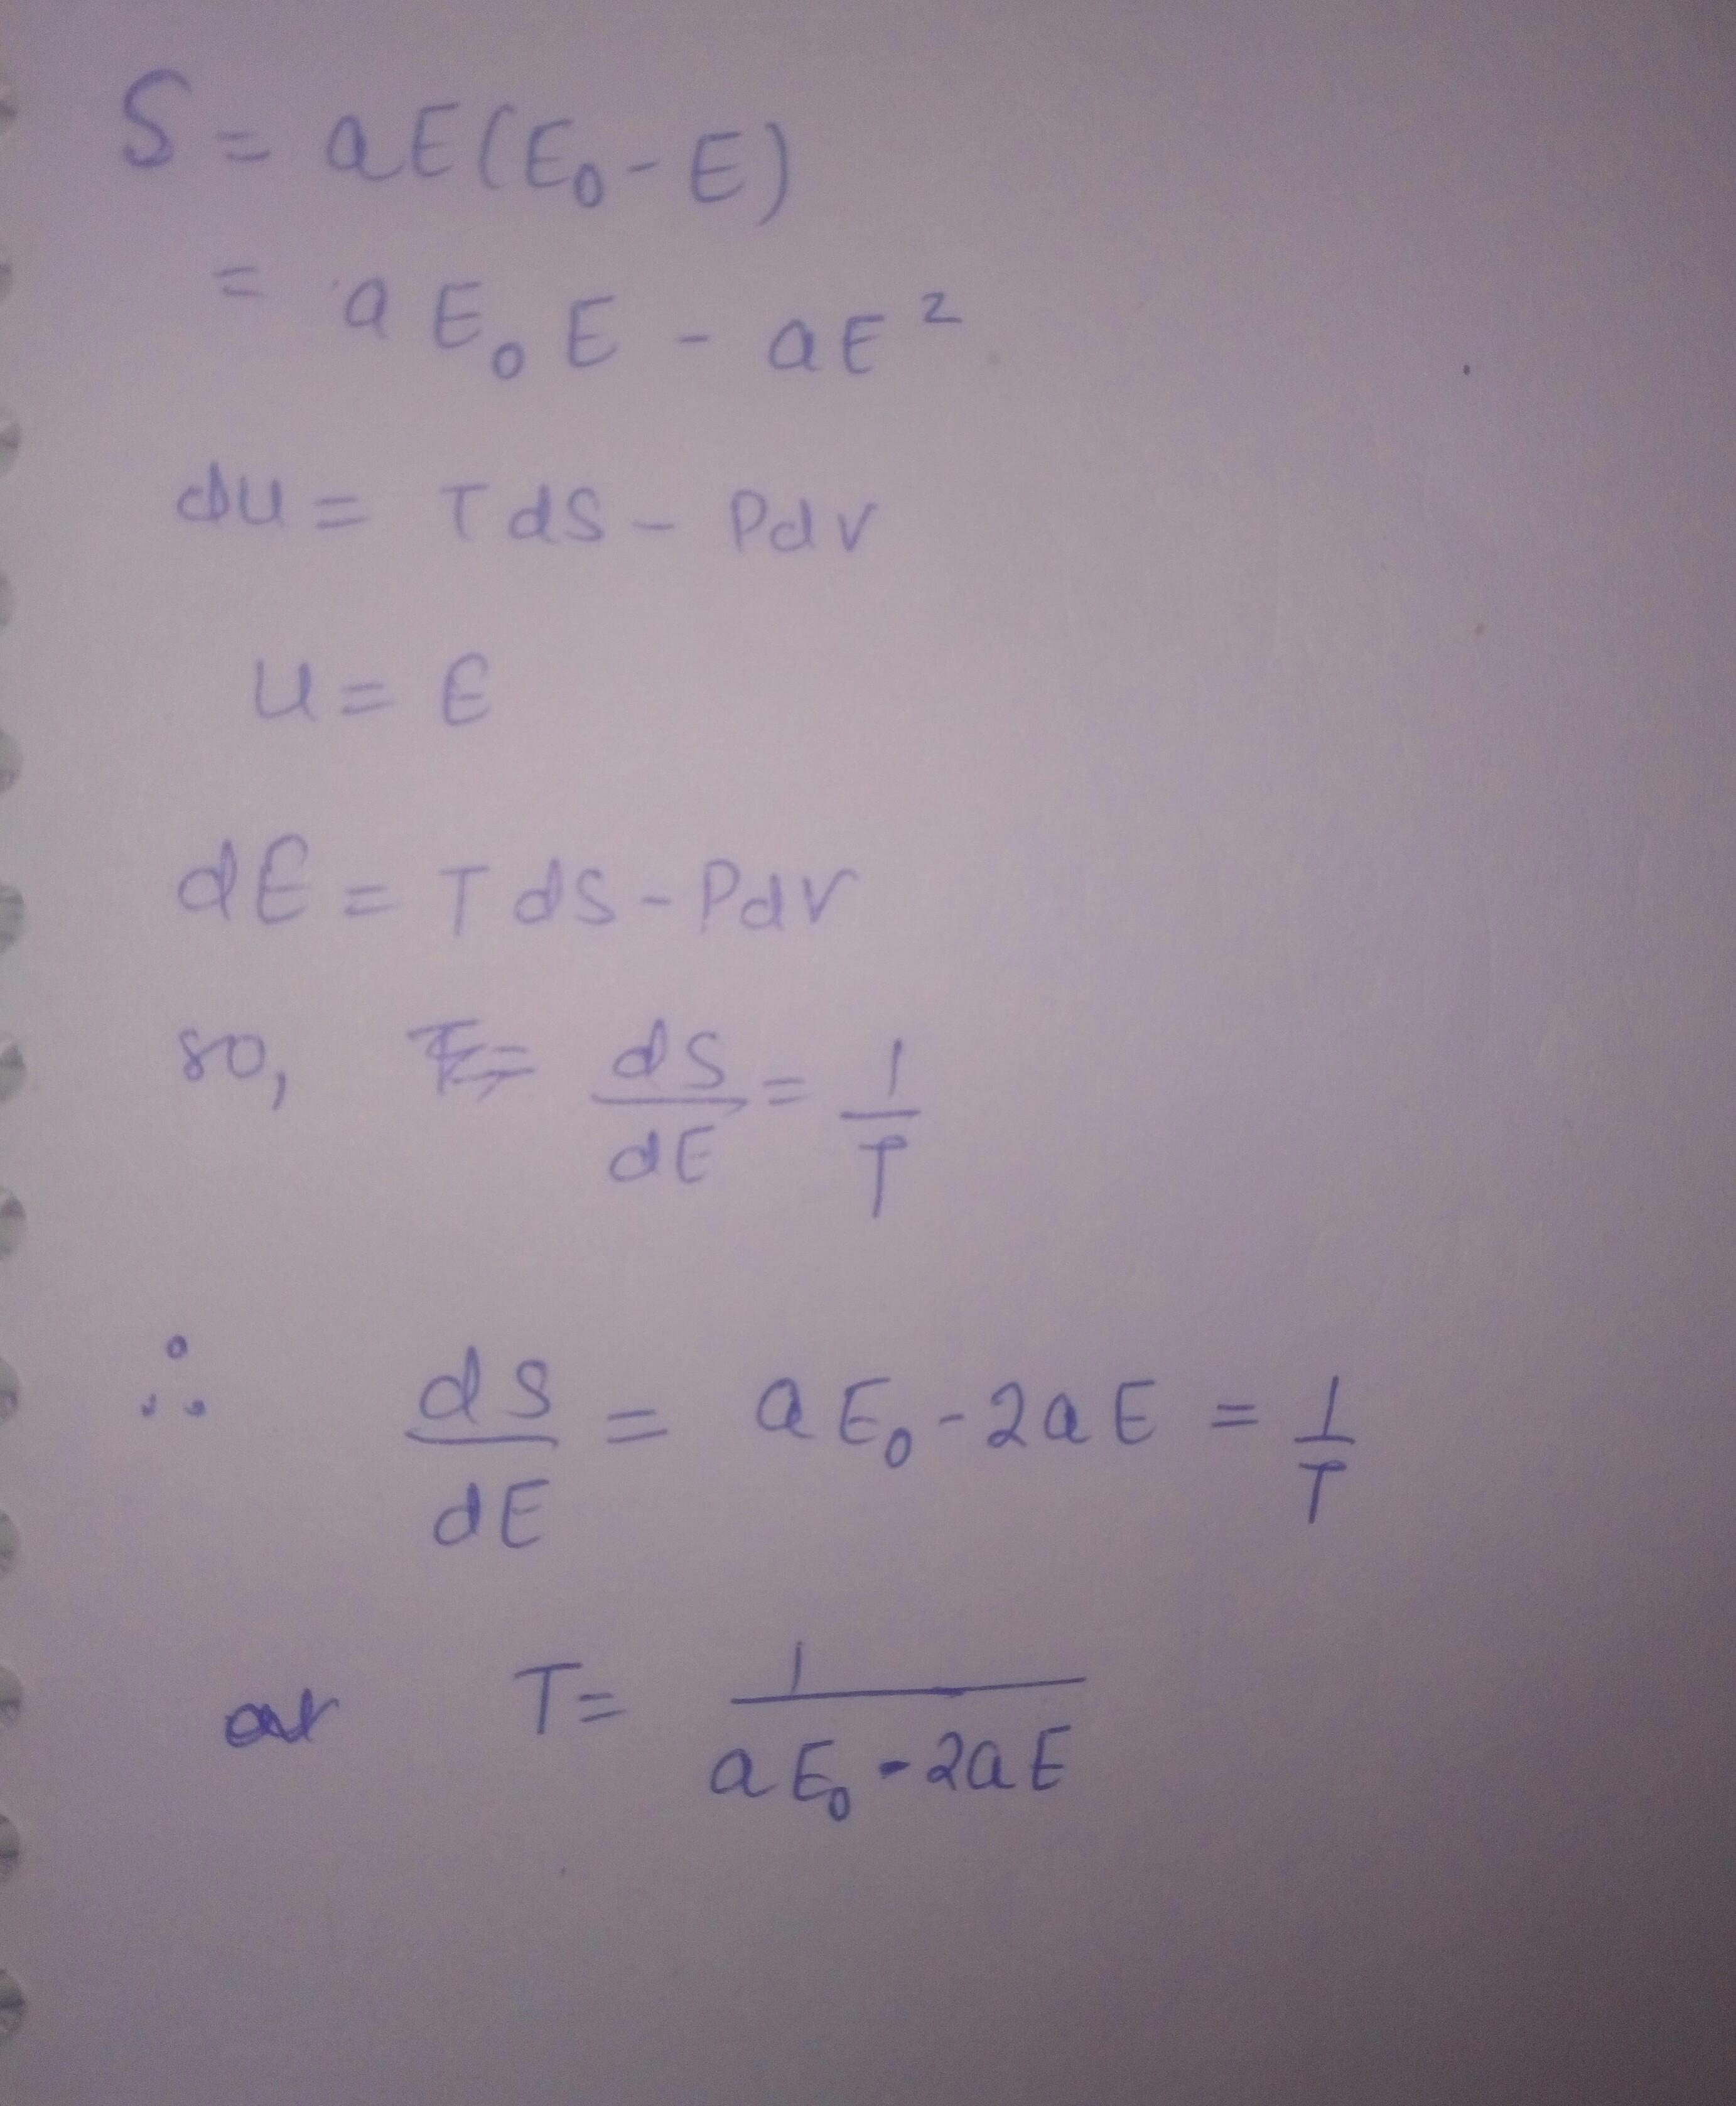 S = aE(E₀-E)
= aE₀E - aE²
dU = TdS - PdV
U = E
dE = TdS - PdV
so, dS/dE = 1/T
∴ dS/dE = aE₀-2aE = 1/T
or T = 1/(aE₀-2aE)